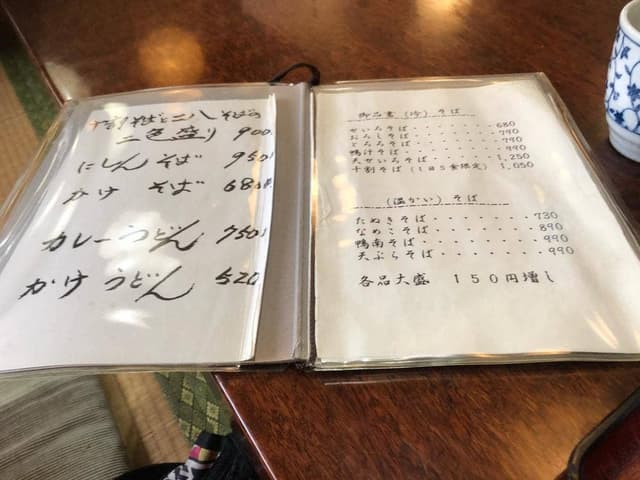 十割そばと二八そばの
二色盛り 900
にしんそば 950
かけ そば 680
カレーうどん 750
かけうどん 520
御品書(冷)そば
せいろそば・・・・・・・680
おろしそば・・・・・・・790
とろろそば・・・・・・・790
鴨汁そば・・・・・・・・990
天せいろそば・・・・・1,250
十割そば(1日5食限定) 1,050
(温かい)そば
たぬきそば・・・・・・・730
なめこそば・・・・・・・890
鴨南そば・・・・・・・・990
天ぷらそば・・・・・・・990
各品大盛 150円増し